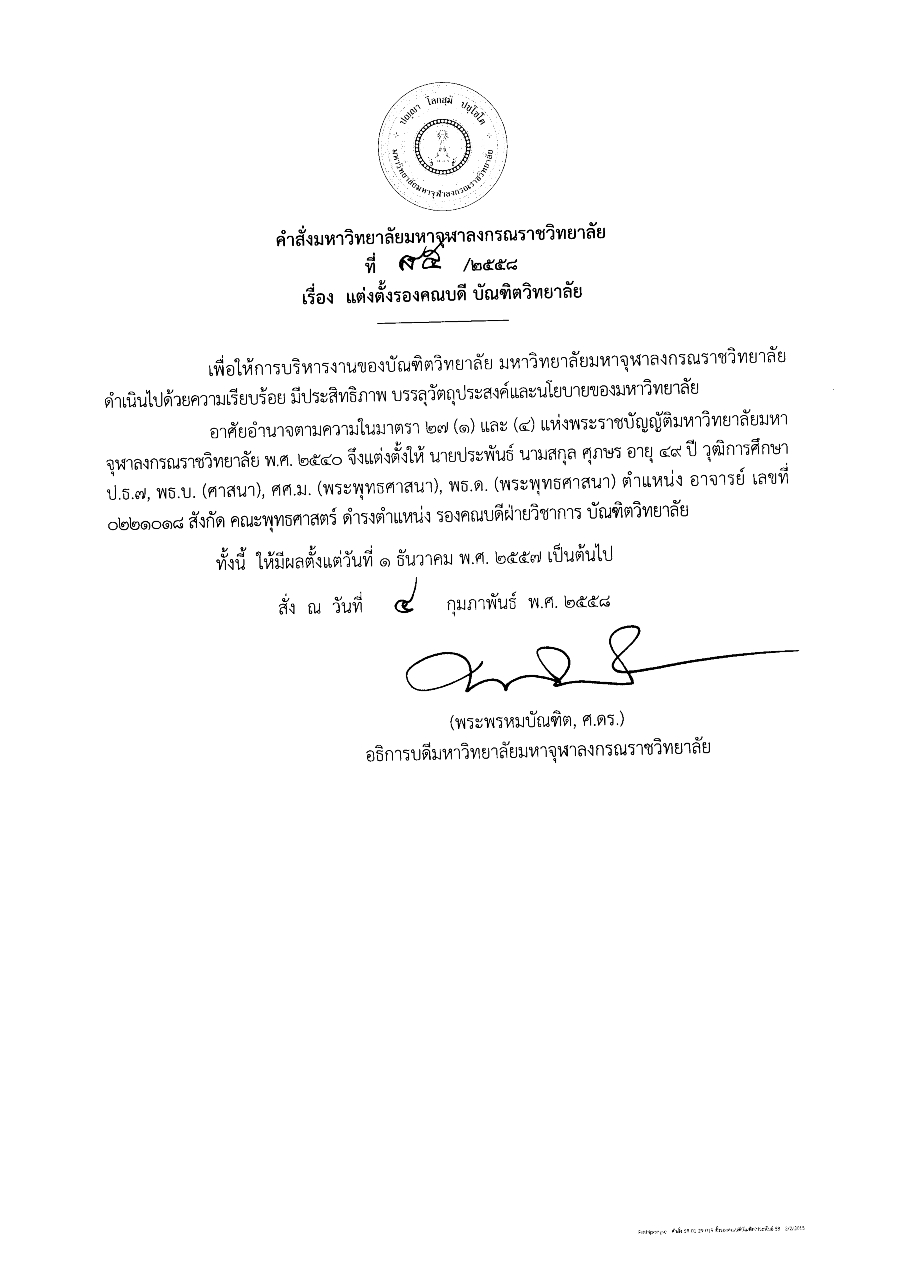 ปญฺญา โลกสฺมิ ปชฺโชโต
มหาวิทยาลัยมหาจุฬาลงกรณราชวิทยาลัย
คำสั่งมหาวิทยาลัยมหาจุฬาลงกรณราชวิทยาลัย
ที่ ๙๕ /๒๕๕๘
เรื่อง แต่งตั้งรองคณบดี บัณฑิตวิทยาลัย
เพื่อให้การบริหารงานของบัณฑิตวิทยาลัย มหาวิทยาลัยมหาจุฬาลงกรณราชวิทยาลัย
ดำเนินไปด้วยความเรียบร้อย มีประสิทธิภาพ บรรลุวัตถุประสงค์และนโยบายของมหาวิทยาลัย
อาศัยอำนาจตามความในมาตรา ๒๗ (๑) และ (๔) แห่งพระราชบัญญัติมหาวิทยาลัยมหา
จุฬาลงกรณราชวิทยาลัย พ.ศ. ๒๕๔๐ จึงแต่งตั้งให้ นายประพันธ์ นามสกุล ศุภษร อายุ ๔๙ ปี วุฒิการศึกษา
ป.ธ.๗, พธ.บ. (ศาสนา), ศศ.ม. (พระพุทธศาสนา), พธ.ด. (พระพุทธศาสนา) ตำแหน่ง อาจารย์ เลขที่
๐๒๒๑๐๑๘ สังกัด คณะพุทธศาสตร์ ดำรงตำแหน่ง รองคณบดีฝ่ายวิชาการ บัณฑิตวิทยาลัย
ทั้งนี้ ให้มีผลตั้งแต่วันที่ ๑ ธันวาคม พ.ศ. ๒๕๕๗ เป็นต้นไป
สั่ง ณ วันที่ ๔ กุมภาพันธ์ พ.ศ. ๒๕๕๘
(พระพรหมบัณฑิต, ศ.ดร.)
อธิการบดีมหาวิทยาลัยมหาจุฬาลงกรณราชวิทยาลัย